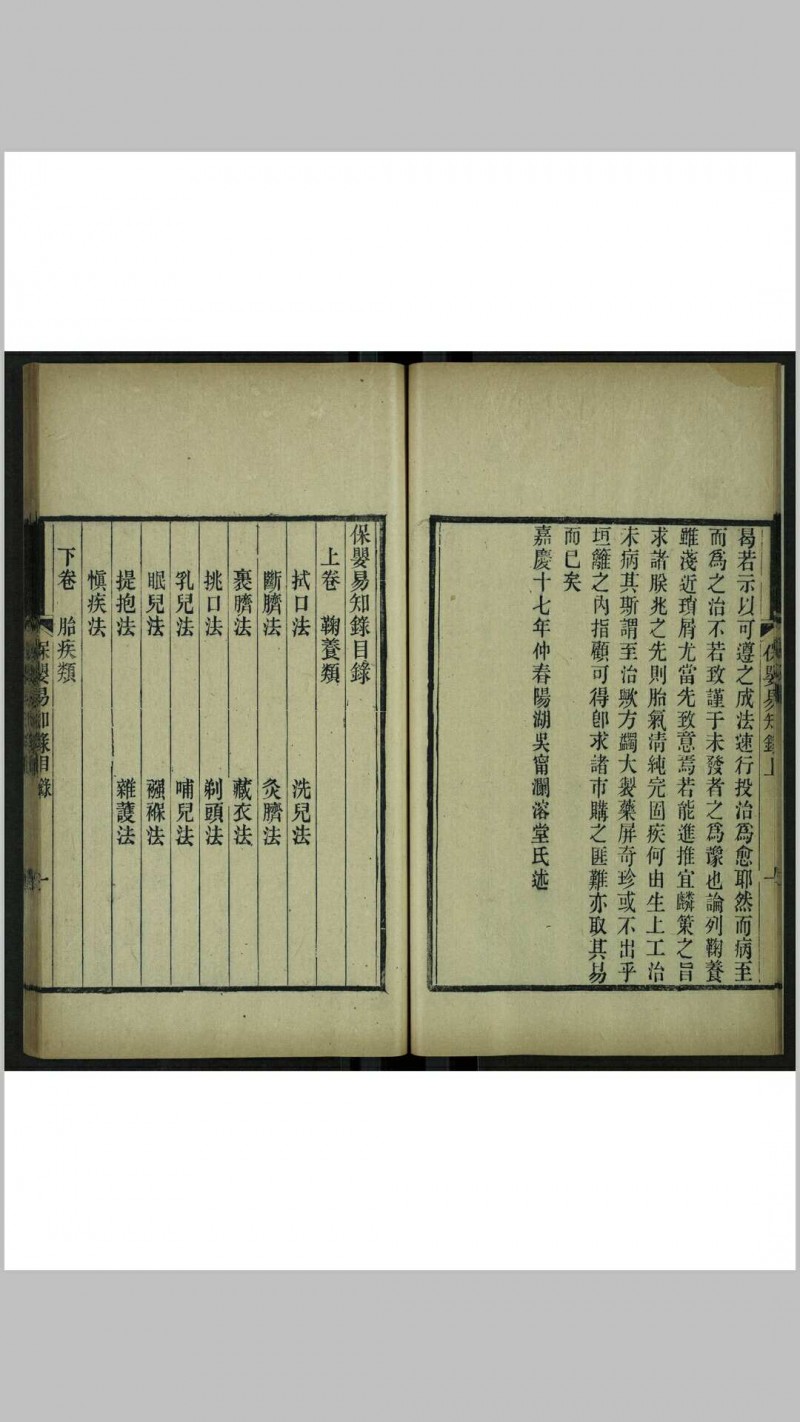 保嬰易知錄上
一
曷若示以可遵之成法速行投治爲愈耶然而病至
而爲之治不若致謹于未發者之爲豫也論列鞠養
雖淺近瑣屑尤當先致意焉若能進推宜麟策之旨
求諸朕兆之先則胎氣淸純完固疾何由生上工治
未病其斯謂至治歟方蠲大製藥屏奇珍或不出乎
垣籬之內指顧可得卽求諸市購之匪難亦取其易
而已矣
嘉慶十七年仲春陽湖吳甯瀾溶堂氏述
保嬰易知錄目錄
上卷 鞠養類
拭口法 洗兒法
斷臍法 灸臍法
裹臍法 藏衣法
挑口法 剃頭法
乳兒法 哺兒法
眠兒法 襁褓法
提抱法 雜護法
愼疾法
下卷 胎疾類
保嬰易知錄目錄
一